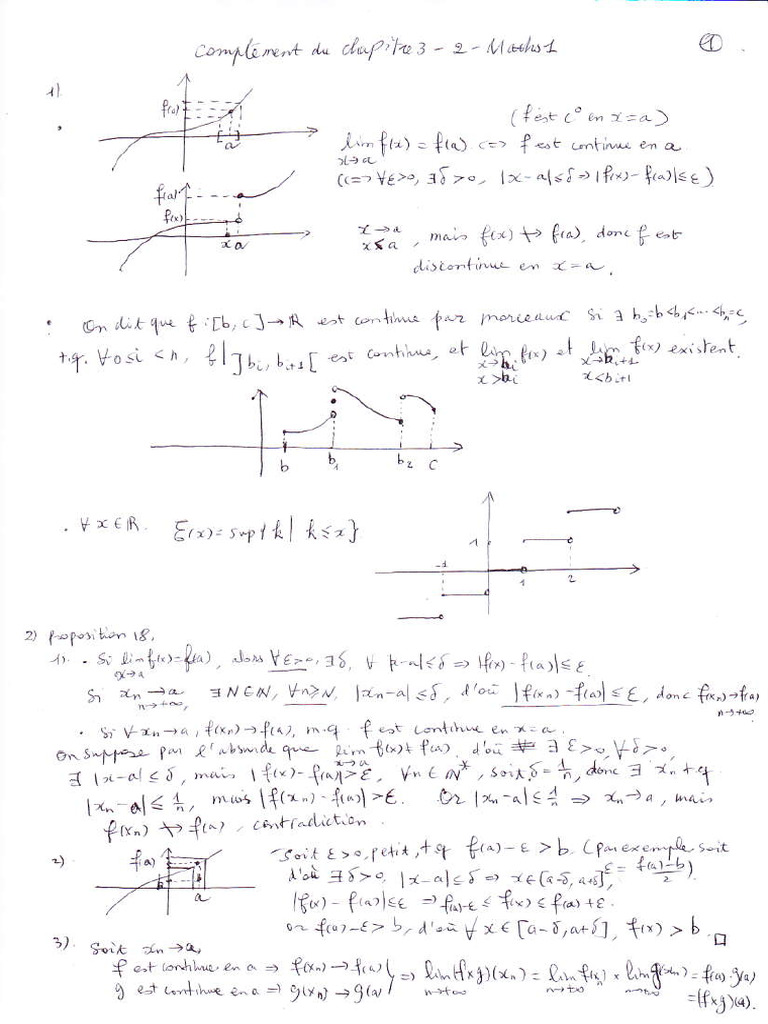 Complément du chapitre 3 - 2 - Maths 1
①.
1)
f(a)
a
(f est C° en x=a)
lim f(x) = f(a) <=> f est continue en a
x→a
(<=> ∀ε>0, ∃δ>0, |x-a|≤δ => |f(x)-f(a)|≤ε)
f(a)
f(x)
x a
x→a
x<a , mais f(x) ↛ f(a), donc f est
discontinue en x=a.
On dit que f:[b,c]→ℝ est continue par morceaux si ∃ b₀=b<b₁<...<bₙ=c,
t.q. ∀ 0≤i<n, f|]bi, bi+1[ est continue, et lim f(x) et lim f(x) existent.
x→bi x→bi+1
x>bi x<bi+1
b b₁ b₂ c
. ∀x∈ℝ. E(x)=sup{k| k≤x}
1
-1
1 2
2) Proposition 18.
1). . Si lim f(x)=f(a), alors ∀ε>0, ∃δ, ∀ |x-a|≤δ => |f(x)-f(a)|≤ε.
x→a
Si xn→a, ∃N∈ℕ, ∀n≥N, |xn-a|≤δ, d'où |f(xn)-f(a)|≤ε, donc f(xn)→f(a)
n→+∞ n→+∞
. Si ∀xn→a, f(xn)→f(a), m.q. f est continue en x=a.
On suppose par l'absurde que lim f(x)≠f(a), d'où ∃ε>0, ∀δ>0,
x→a
∃ |x-a|≤δ, mais |f(x)-f(a)|>ε, ∀n∈ℕ*, soit δ=1/n, donc ∃ xn t.q.
|xn-a|≤1/n, mais |f(xn)-f(a)|>ε. Or |xn-a|≤1/n => xn→a, mais
f(xn) ↛ f(a), contradiction.
2)
f(a)
b
a
Soit ε>0, petit, t.q. f(a)-ε>b. (par exemple soit
ε = (f(a)-b)/2)
d'où ∃δ>0, |x-a|≤δ => x∈[a-δ, a+δ],
|f(x)-f(a)|≤ε => f(a)-ε ≤ f(x) ≤ f(a)+ε.
or f(a)-ε>b, d'où ∀ x∈[a-δ,a+δ], f(x)>b. □
3). Soit xn→a,
f est continue en a => f(xn)→f(a)
g est continue en a => g(xn)→g(a) } => lim(f×g)(xn) = lim f(xn) × lim g(xn) = f(a).g(a)
n→+∞ n→+∞ n→+∞
=(f×g)(a).